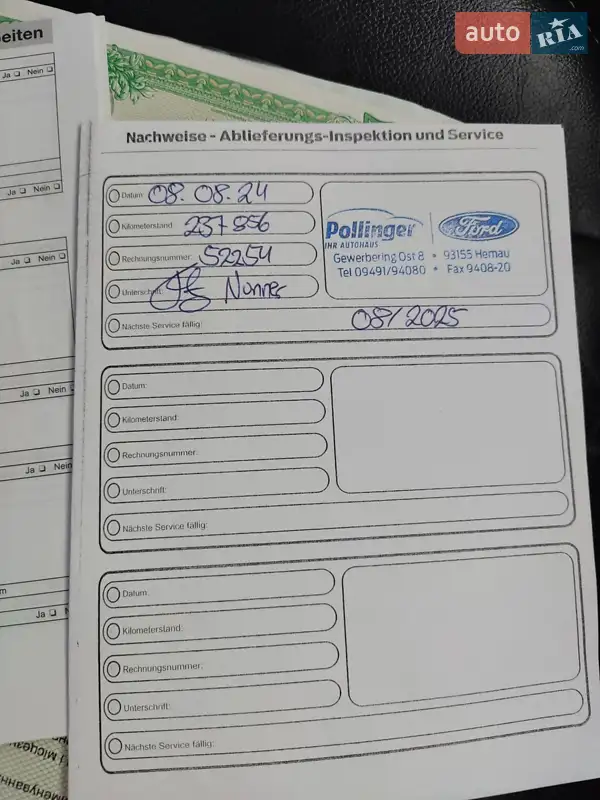 auto RIA .com
eiten
Ja Nein
Ja Nein
Ja Nein
Ja Nein
Ja Nein
Ja
Nachweise - Ablieferungs-Inspektion und Service
Datum: 08.08.24
Kilometerstand: 237856
Rechnungsnummer: 52254
Unterschrift: Nonner
Nächste Service fällig: 08/2025
Pollinger Ford
IHR AUTOHAUS
Gewerbering Ost 8 • 93155 Hemau
Tel 09491/94080 • Fax 9408-20
Datum:
Kilometerstand:
Rechnungsnummer:
Unterschrift:
Nächste Service fällig:
Datum:
Kilometerstand:
Rechnungsnummer:
Unterschrift:
Nächste Service fällig: